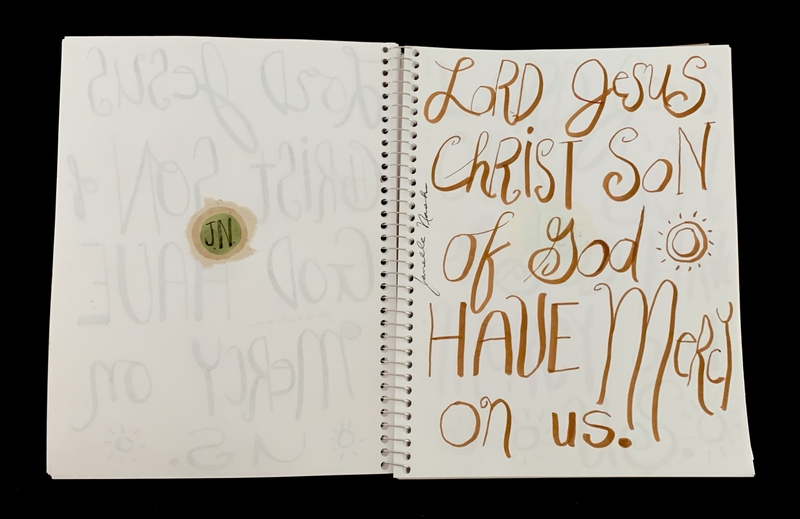 JN
LORD JESUS
CHRIST SON
of God
HAVE MERCY
on us.